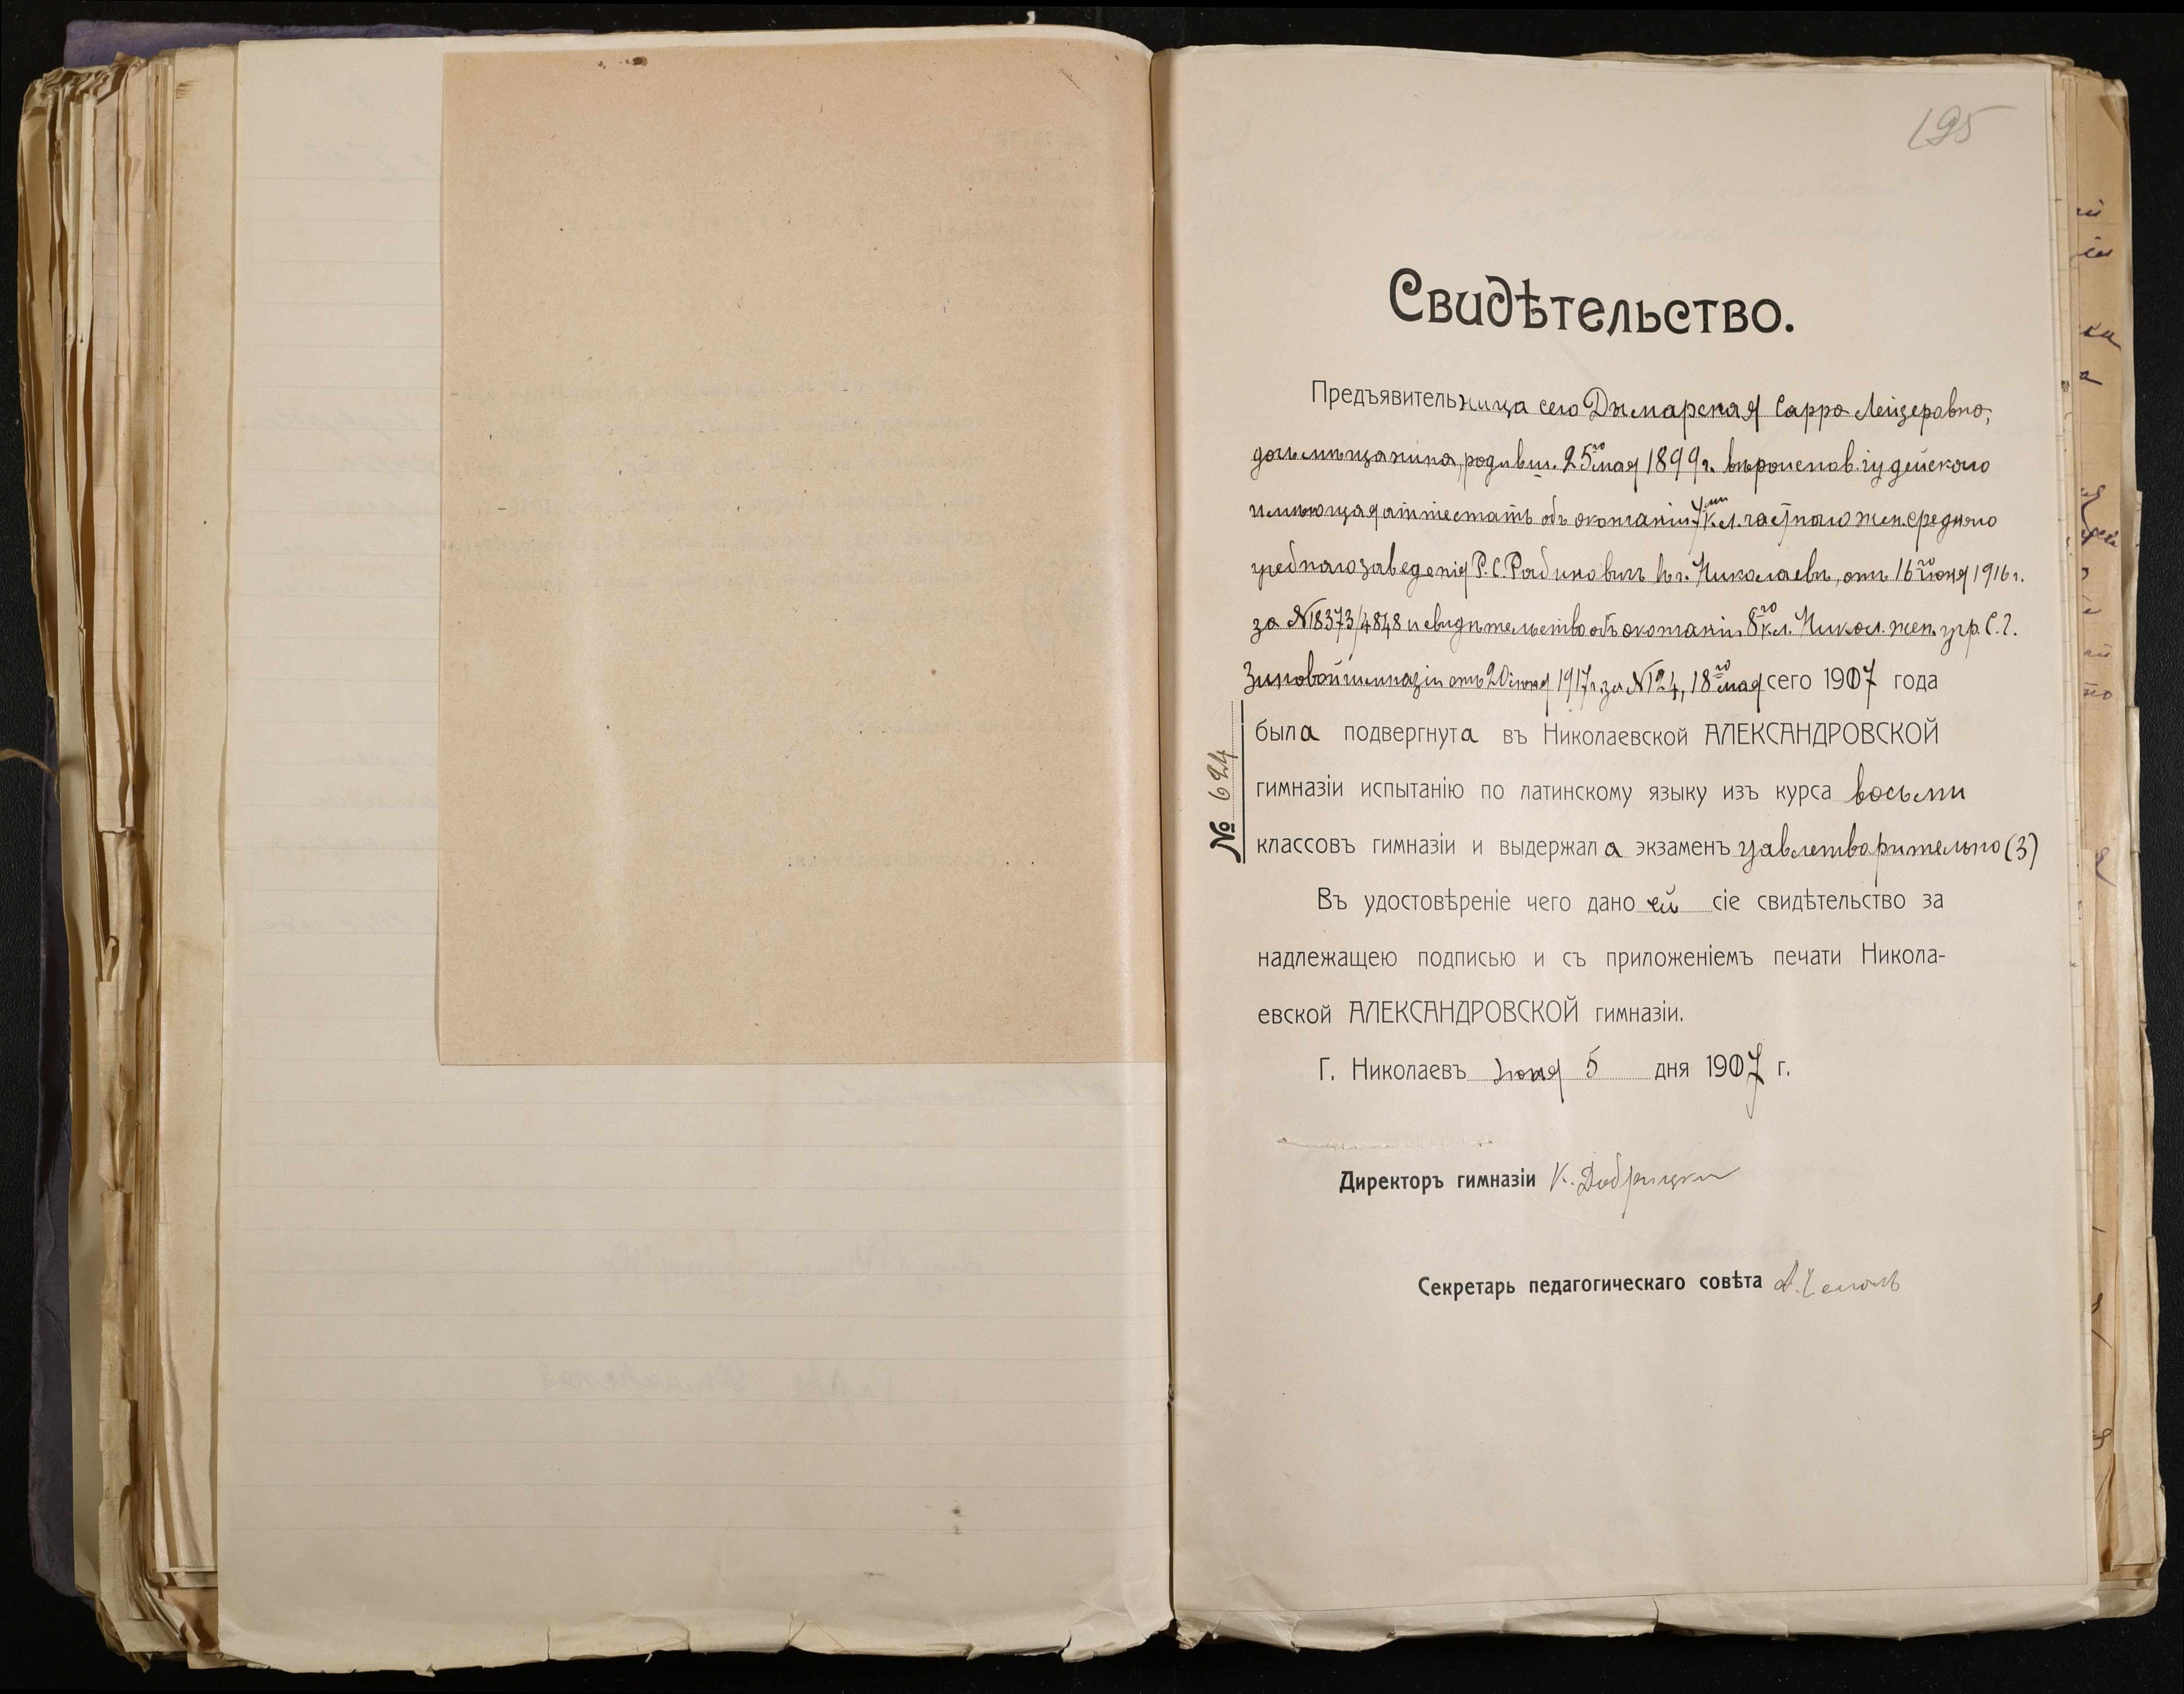 195
Свидѣтельство.
Предъявительница сего Дымарская Сарра Лейзеровна,
дочь мѣщанина, родивш. 25го мая 1899 г. вѣроисповѣд. іудейскаго
имѣющая аттестатъ объ окончаніи 7ми кл. частнаго жен. средняго
учебнаго заведенія Р. С. Рабиновичъ в г. Николаевѣ, отъ 16го іюня 1916 г.
за №18373/4848 и свидѣтельство объ окончаніи 8го кл. Никол. жен. учр. С. Г.
Зиновой гимназіи отъ 20 іюня 1917 г. за №124, 18го мая сего 1917 года
была подвергнута въ Николаевской АЛЕКСАНДРОВСКОЙ
гимназіи испытанію по латинскому языку изъ курса восьми
классовъ гимназіи и выдержала экзаменъ удавлетворительно (3)
№ 624
Въ удостовѣреніе чего дано ей сіе свидѣтельство за
надлежащею подписью и съ приложеніемъ печати Никола-
евской АЛЕКСАНДРОВСКОЙ гимназіи.
Г. Николаевъ Іюня 5 дня 1917 г.
Директоръ гимназіи К.
Секретарь педагогическаго совѣта